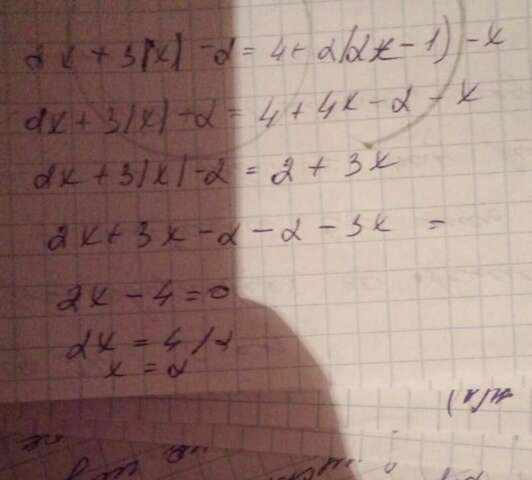 2x + 3|x| - 2 = 4 + 2(2x - 1) - x
2x + 3|x| - 2 = 4 + 4x - 2 - x
2x + 3|x| - 2 = 2 + 3x
2x + 3x - 2 - 2 - 3x =
2x - 4 = 0
2x = 4 /2
x = 2